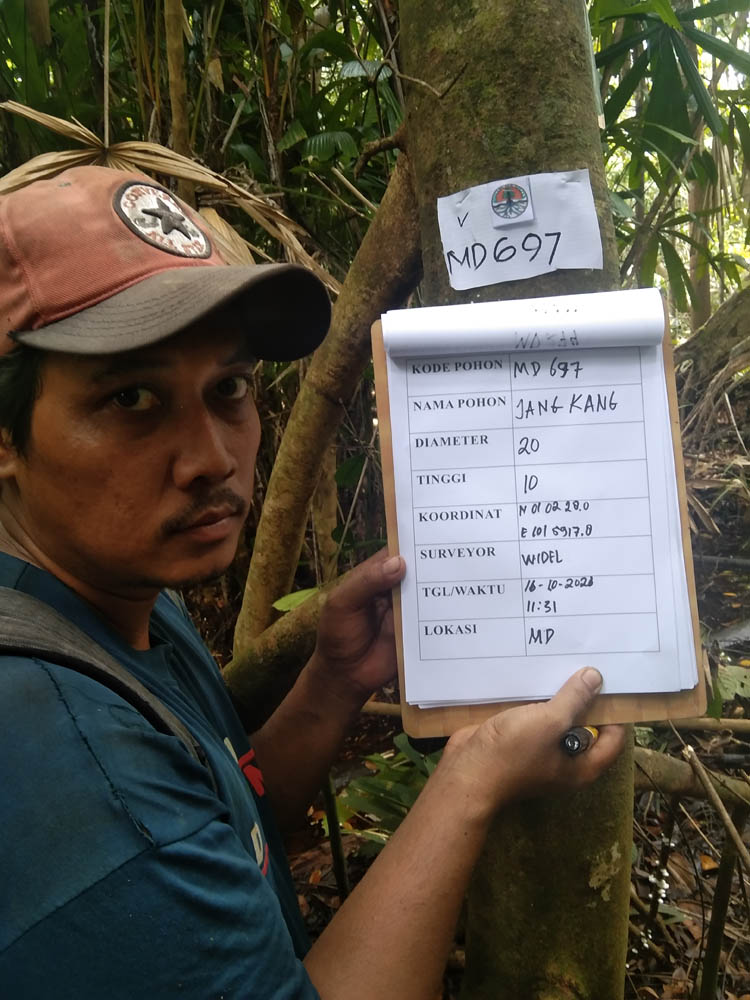 CONVERSE
V
MD697
KODE POHON MD 697
NAMA POHON JANG KANG
DIAMETER 20
TINGGI 10
KOORDINAT N 01 02 28.0
E 101 5917.8
SURVEYOR WIDEL
TGL/WAKTU 16-10-2023
11:31
LOKASI MD